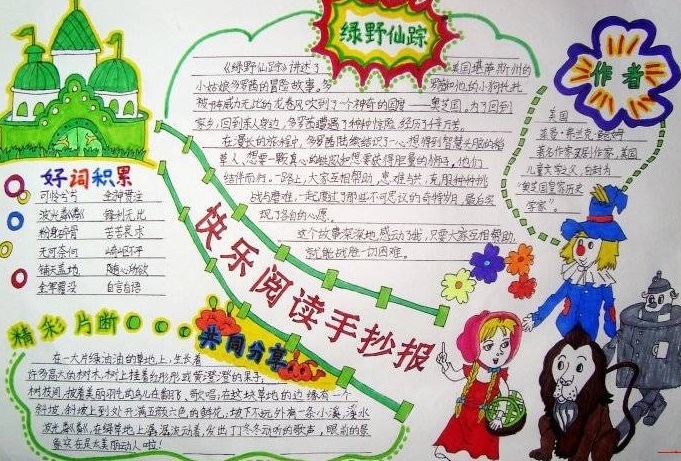 绿野仙踪
《绿野仙踪》讲述了 美国堪萨斯州的
小姑娘多罗茜的冒险故事。多 罗茜和她的小狗托托
被一阵威力无比的龙卷风吹到了一个神奇的国度——奥芝国。为了回到
家乡,回到亲人身边,多罗茜遭遇了种种惊险,经历了千辛万苦。
在漫长的旅程中,多罗茜陆续结识了一心想得到智慧头脑的稻
草人、想要一颗真心的铁皮人和想要获得胆量的狮子。他们
结伴而行,一路上,大家互相帮助,患难与共,克服种种挑
战与磨难,一起度过了那些不可思议的奇特历程,最后实
现了各自的心愿。
这个故事深深地感动了我,只要大家互相帮助,
就能战胜一切困难。
作者
美国
莱曼·弗兰克·鲍姆
著名作家及剧作家,美国
儿童文学之父,自封为
“奥芝国皇家历史
学家”。
好词积累
可怜兮兮 全神贯注
波光粼粼 锋利无比
粉身碎骨 苦苦哀求
无可奈何 崎岖不平
铺天盖地 随心所欲
全军覆没 自言自语
快乐阅读手抄报
精彩片断
共同分享
在一大片绿油油的草地上,生长着
许多高大的树木,树上挂着红彤彤或黄澄澄的果子,
树枝间,披着美丽羽毛的鸟儿在翻飞、歌唱,在这块草地的边缘有一个
斜坡,斜坡上到处开满五颜六色的鲜花,坡下不远外有一条小溪,溪水
波光粼粼,在绿草地上潺潺流动着,发出叮叮冬冬动听的歌声,眼前的景
象实在是太美丽动人啦!